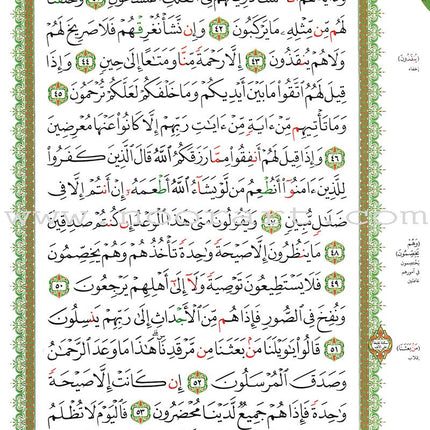 لَهُم مِّن مِّثْلِهِۦ مَا يَرْكَبُونَ ٤٢ وَإِن نَّشَأْ نُغْرِقْهُمْ فَلَا صَرِيخَ لَهُمْ
وَلَا هُمْ يُنقَذُونَ ٤٣ إِلَّا رَحْمَةً مِّنَّا وَمَتَٰعًا إِلَىٰ حِينٍ ٤٤ وَإِذَا
قِيلَ لَهُمُ ٱتَّقُوا۟ مَا بَيْنَ أَيْدِيكُمْ وَمَا خَلْفَكُمْ لَعَلَّكُمْ تُرْحَمُونَ ٤٥
وَمَا تَأْتِيهِم مِّنْ ءَايَةٍ مِّنْ ءَايَٰتِ رَبِّهِمْ إِلَّا كَانُوا۟ عَنْهَا مُعْرِضِينَ
٤٦ وَإِذَا قِيلَ لَهُمْ أَنفِقُوا۟ مِمَّا رَزَقَكُمُ ٱللَّهُ قَالَ ٱلَّذِينَ كَفَرُوا۟
لِلَّذِينَ ءَامَنُوٓا۟ أَنُطْعِمُ مَن لَّوْ يَشَآءُ ٱللَّهُ أَطْعَمَهُۥٓ إِنْ أَنتُمْ إِلَّا فِى
ضَلَٰلٍ مُّبِينٍ ٤٧ وَيَقُولُونَ مَتَىٰ هَٰذَا ٱلْوَعْدُ إِن كُنتُمْ صَٰدِقِينَ
٤٨ مَا يَنظُرُونَ إِلَّا صَيْحَةً وَٰحِدَةً تَأْخُذُهُمْ وَهُمْ يَخِصِّمُونَ
٤٩ فَلَا يَسْتَطِيعُونَ تَوْصِيَةً وَلَآ إِلَىٰٓ أَهْلِهِمْ يَرْجِعُونَ ٥٠
وَنُفِخَ فِى ٱلصُّورِ فَإِذَا هُم مِّنَ ٱلْأَجْدَاثِ إِلَىٰ رَبِّهِمْ يَنسِلُونَ
٥١ قَالُوا۟ يَٰوَيْلَنَا مَنۢ بَعَثَنَا مِن مَّرْقَدِنَا هَٰذَا مَا وَعَدَ ٱلرَّحْمَٰنُ
وَصَدَقَ ٱلْمُرْسَلُونَ ٥٢ إِن كَانَتْ إِلَّا صَيْحَةً
وَٰحِدَةً فَإِذَا هُمْ جَمِيعٌ لَّدَيْنَا مُحْضَرُونَ ٥٣ فَٱلْيَوْمَ لَا تُظْلَمُ
(وَهُمْ
يَخِصِّمُونَ)